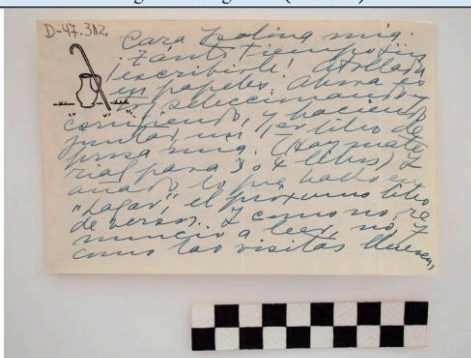 D-47.312
Cara Zolina mía:
Tánto tiempo sin
escribirle! Atollada
en papeles. Ahora es
seleccionando,
corrigiendo, y haciendo
juntar un 1er libro de
prosa mía. (Hay mate
rial para 3 o 4 libros) Y
añado lo que hacho es
"Lagar", el próximo libro
de versos. Y como no re
nuncio a leer, no, Y
como las visitas llueven,